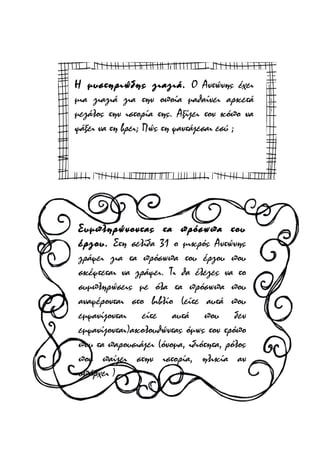 Η μυστηριώδης γιαγιά. Ο Αντώνης έχει
μια γιαγιά για την οποία μαθαίνει αρκετά
μεγάλος την ιστορία της. Αξίζει τον κόπο να
ψάξει να τη βρει; Πώς τη φαντάζεσαι εσύ ;
Συμπληρώνοντας τα πρόσωπα του
έργου. Στη σελίδα 31 ο μικρός Αντώνης
γράφει για τα πρόσωπα του έργου που
σκέφτεται να γράψει. Τι θα έλεγες να το
συμπληρώσεις με όλα τα πρόσωπα που
αναφέρονται στο βιβλίο (είτε αυτά που
εμφανίζονται είτε αυτά που δεν
εμφανίζονται)ακολουθώντας όμως τον τρόπο
που τα παρουσιάζει (όνομα, ιδιότητα, ρόλος
που παίζει στην ιστορία, ηλικία αν
υπάρχει )